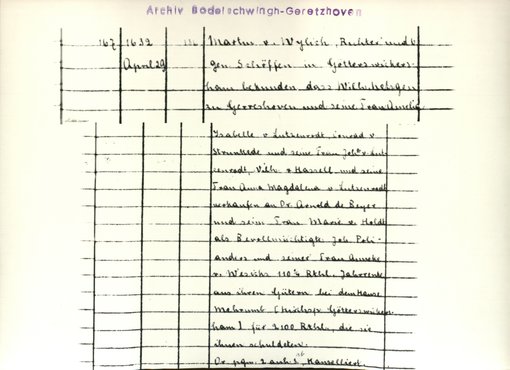 Archiv Bodelschwingh-Geretzhoven
167 1632 116 Martin v. Wylich, Richter und
April 29 gen Schöffen in Götterswickers-
ham bekunden dass Wilh.
zu Gerreshoven und seine Frau Amelia
Isabella v Lutzenradt, Conrad v
Strunkede und seine Frau Joh. v Lut-
zenradt, Wilh. v Hassell und seine
Frau Anna Magdalena v Lutzenradt
verkaufen an Dr. Arnold de Beyer
und sein Frau Maria v. Holdt
als Bevollmächtigte Joh. Poli-
anders und seiner Frau Anneke
v. Wesichs 110 Rthl. Jahrrente
aus ihren Gütern bei dem Hause
Mehrumb Götterswickers-
ham ) für 2100 Rthlr, die sie
ihnen schuldeten.
Or. pgm. 2 anh. S. Kanselliert.